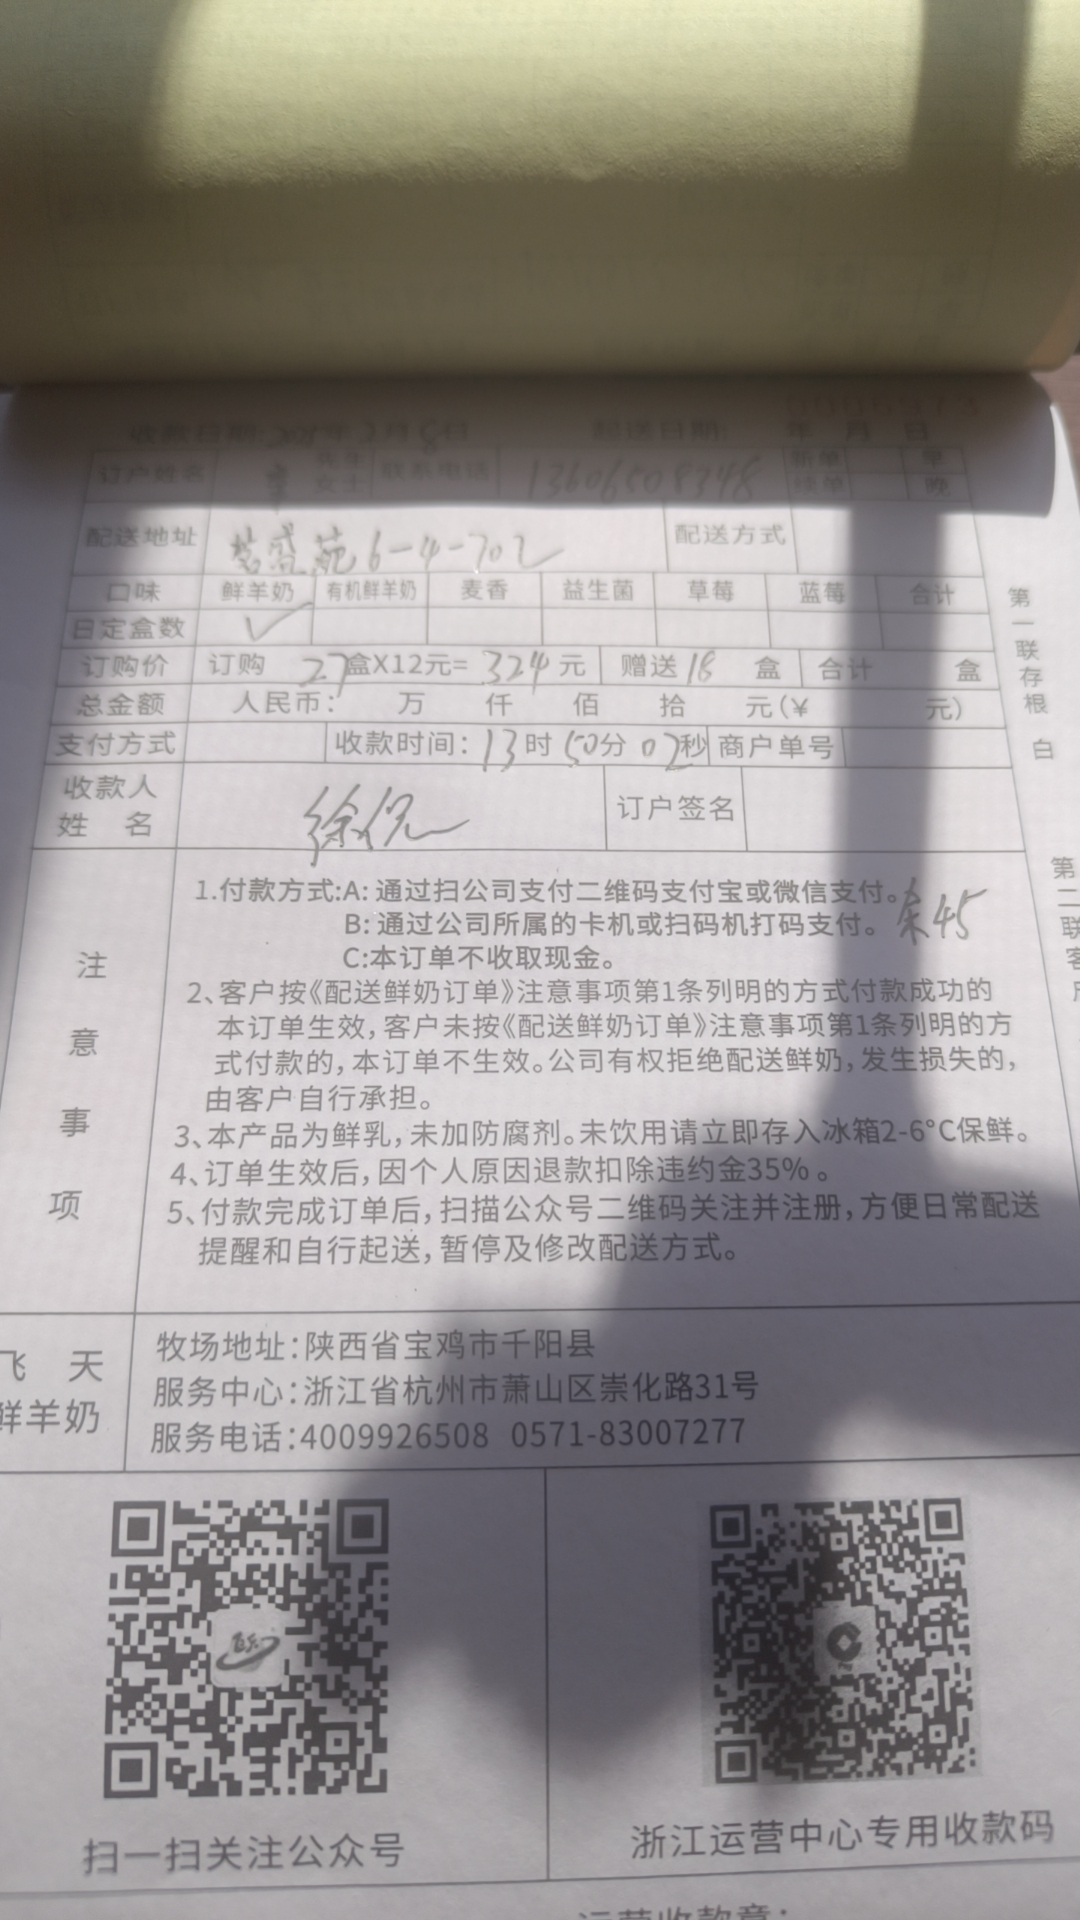 收款日期: 年 月 日 起送日期: 年 月 日
订户姓名 先生 女士 联系电话 13606508348 新单 续单 早 晚
配送地址 苑6-4-702 配送方式
口味 鲜羊奶 有机鲜羊奶 麦香 益生菌 草莓 蓝莓 合计
日定盒数 ✓
订购价 订购 27盒X12元=324元 赠送18 盒 合计 盒
总金额 人民币: 万 仟 佰 拾 元(¥ 元)
支付方式 收款时间:13时50分02秒 商户单号
收款人
姓 名 徐 订户签名
注意事项
1.付款方式:A: 通过扫公司支付二维码支付宝或微信支付。
B: 通过公司所属的卡机或扫码机打码支付。 45
C:本订单不收取现金。
2、客户按《配送鲜奶订单》注意事项第1条列明的方式付款成功的
本订单生效,客户未按《配送鲜奶订单》注意事项第1条列明的方
式付款的,本订单不生效。公司有权拒绝配送鲜奶,发生损失的,
由客户自行承担。
3、本产品为鲜乳,未加防腐剂。未饮用请立即存入冰箱2-6°C保鲜。
4、订单生效后,因个人原因退款扣除违约金35%。
5、付款完成订单后,扫描公众号二维码关注并注册,方便日常配送
提醒和自行起送,暂停及修改配送方式。
第一联存根 白
第二联客
飞 天
鲜羊奶
牧场地址:陕西省宝鸡市千阳县
服务中心:浙江省杭州市萧山区崇化路31号
服务电话:4009926508 0571-83007277
扫一扫关注公众号
浙江运营中心专用收款码
运营收款章: